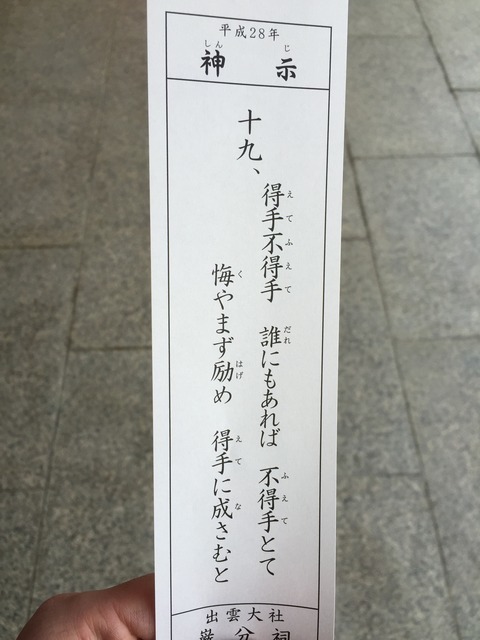 平成28年
神示
十九、
得手不得手 誰にもあれば 不得手とて
悔やまず励め 得手に成さむと
出雲大社
分祠